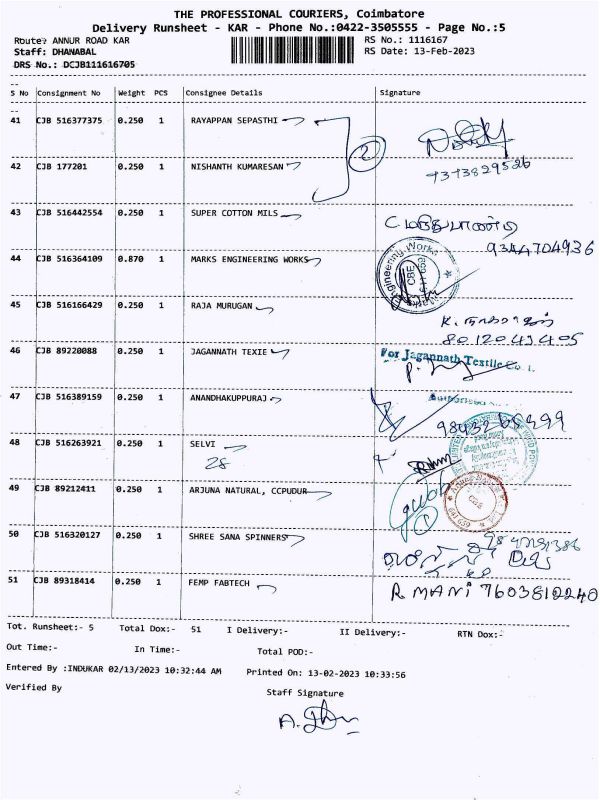 THE PROFESSIONAL COURIERS, Coimbatore
Delivery Runsheet - KAR - Phone No.:0422-3505555 - Page No.:5
Route? ANNUR ROAD KAR RS No.: 1116167
Staff: DHANABAL RS Date: 13-Feb-2023
DRS No.: DCJB111616705
S No Consignment No Weight PCS Consignee Details Signature
41 CJB 516377375 0.250 1 RAYAPPAN SEPASTHI
2
42 CJB 177201 0.250 1 NISHANTH KUMARESAN 7373829526
43 CJB 516442554 0.250 1 SUPER COTTON MILS
9344704936
44 CJB 516364109 0.870 1 MARKS ENGINEERING WORKS
Engineering Works
CBE
45 CJB 516166429 0.250 1 RAJA MURUGAN
8012043405
46 CJB 89220088 0.250 1 JAGANNATH TEXIE For Jagannath Textile Co.
47 CJB 516389159 0.250 1 ANANDHAKUPPURAJ
48 CJB 516263921 0.250 1 SELVI
28
49 CJB 89212411 0.250 1 ARJUNA NATURAL, CCPUDUR
641 659
1
50 CJB 516320127 0.250 1 SHREE SANA SPINNERS
51 CJB 89318414 0.250 1 FEMP FABTECH R MANI 7603810240
Tot. Runsheet:- 5 Total Dox:- 51 I Delivery:- II Delivery:- RTN Dox:-
Out Time:- In Time:- Total POD:-
Entered By :INDUKAR 02/13/2023 10:32:44 AM Printed On: 13-02-2023 10:33:56
Verified By Staff Signature